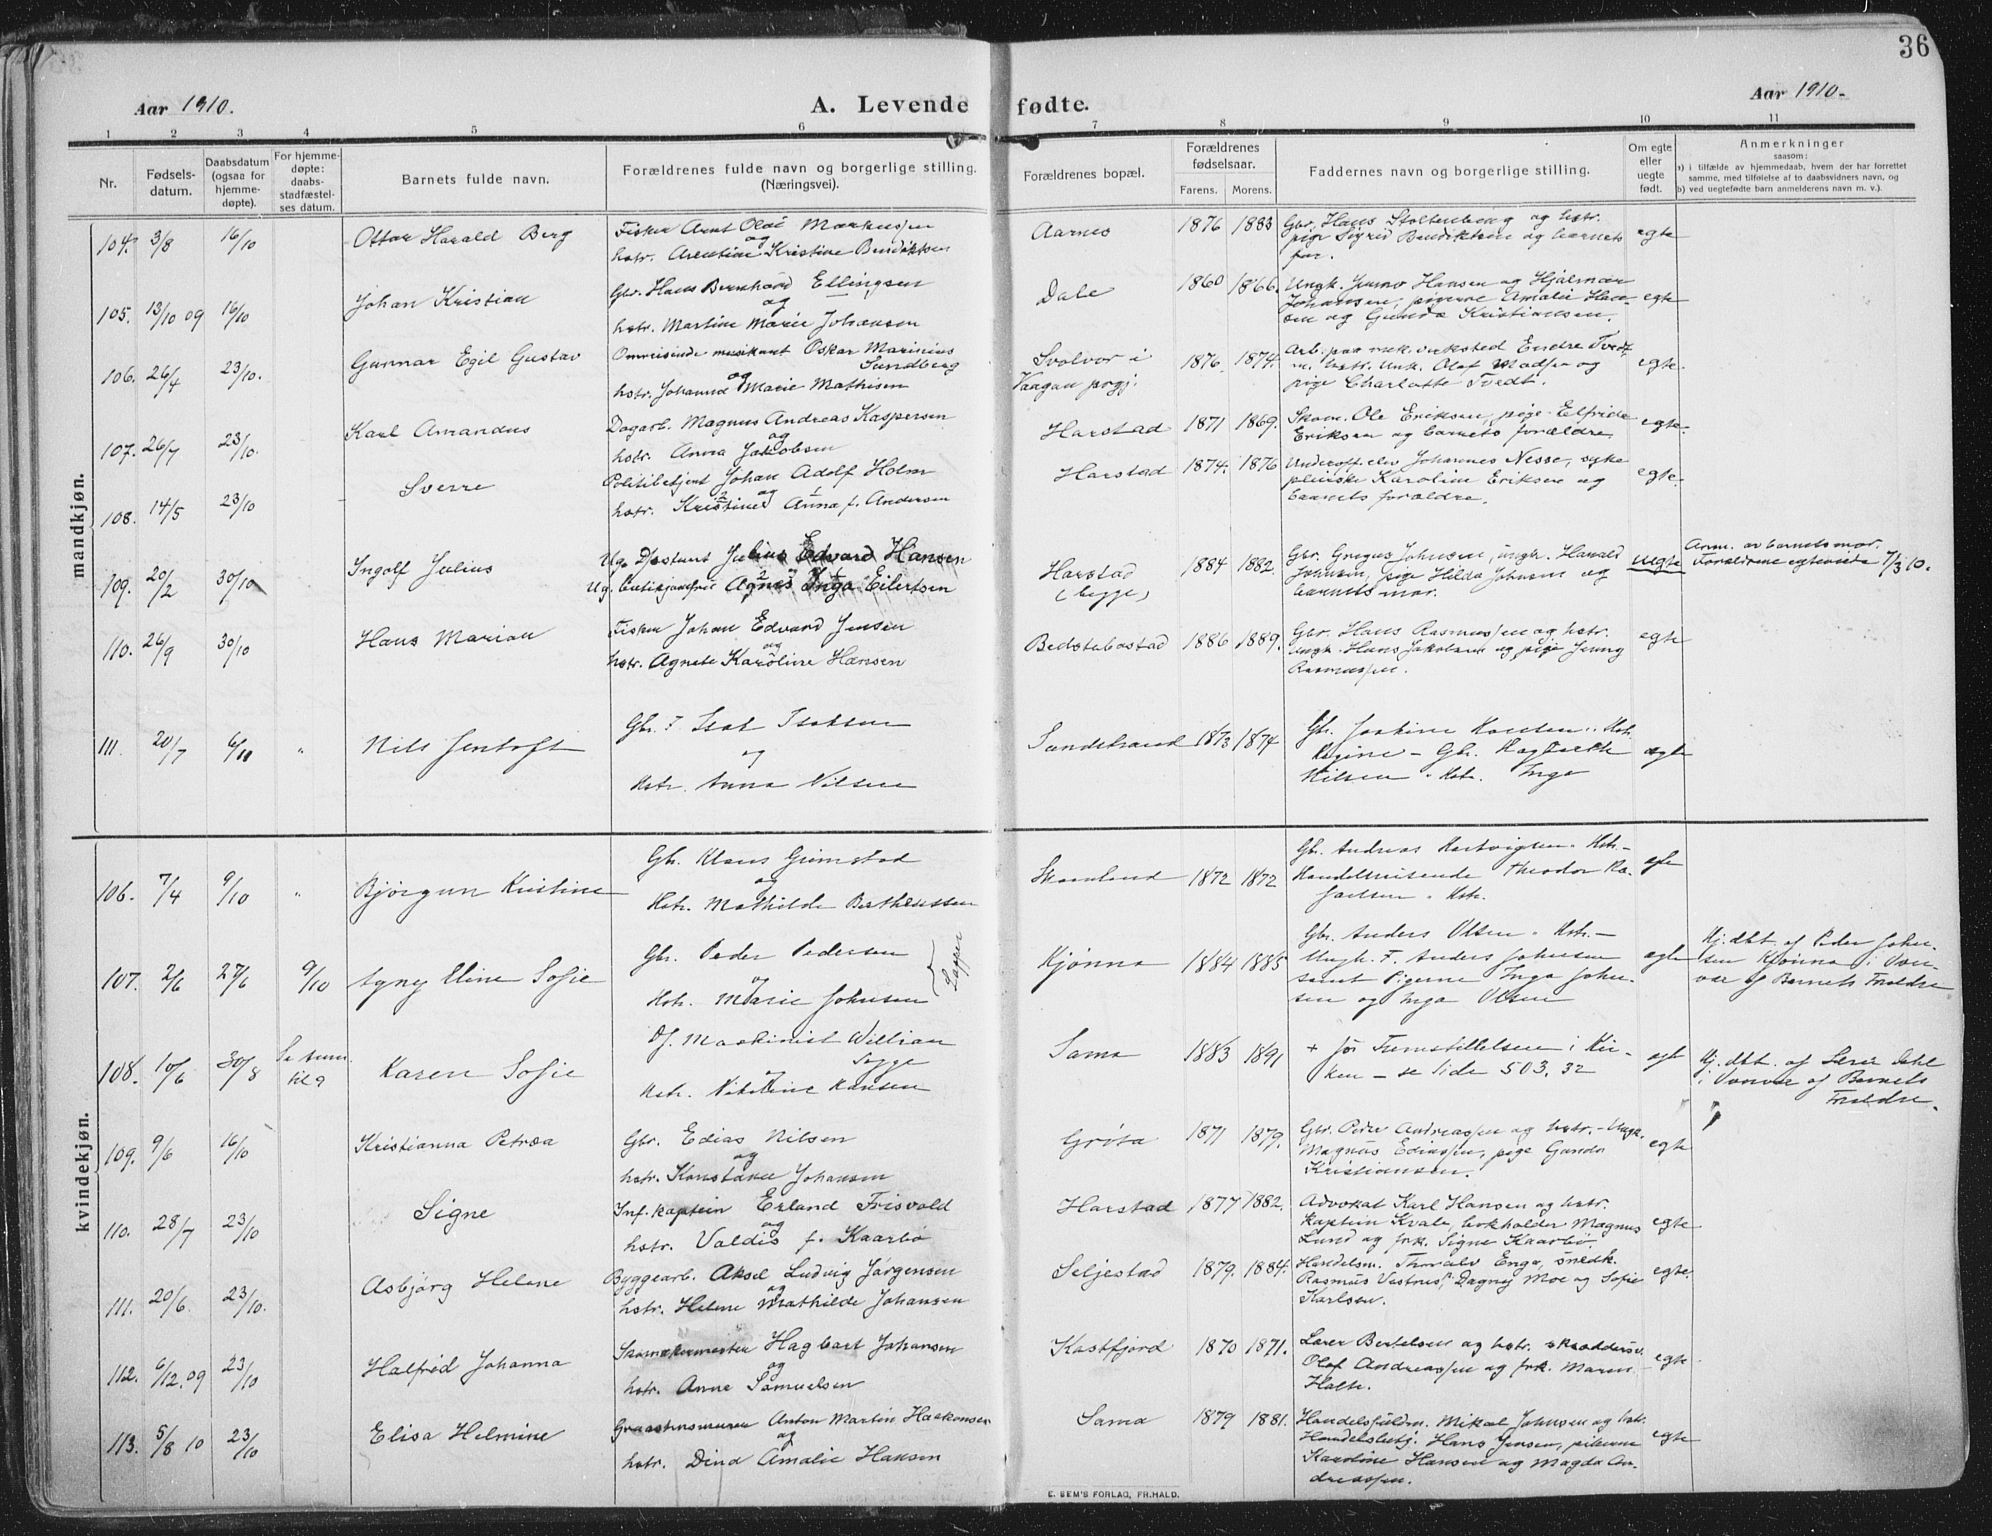 36
Aar 1910.
A. Levende fødte.
Aar 1910.
1 2 3 4 5 6 7 8 9 10 11
Nr.
Fødsels-
datum.
Daabsdatum
(ogsaa for
hjemme-
døpte).
For hjemme-
døpte:
daabs-
stadfæstel-
ses datum.
Barnets fulde navn.
Forældrenes fulde navn og borgerlige stilling.
(Næringsvei).
Forældrenes bopæl.
Forældrenes
fødselsaar.
Farens. Morens.
Faddernes navn og borgerlige stilling.
Om egte
eller
uegte
født.
Anmerkninger
saasom:
a) i tilfælde av hjemmedaab, hvem der har forrettet
samme, med tilføielse af to daabsvidners navn, og
b) ved uegtefødte barn anmelderens navn m. v.).
mandkjøn.
104. 3/8 16/10 Ottar Harald Berg
Fisker Arnt Olai Markussen
og
hstr. Arentine Kristine Benediktsen
Aarnes 1876 1883
Gbr. Hans Stoltenberg og hstr.
pige Sigrid Benediktsen og barnets
far.
egte
105. 13/10 09 16/10 Johan Kristian
Gbr. Hans Bernhard Ellingsen
og
hstr. Martine Marie Johansen
Dale 1860 1866.
Ungk. Hansen og Hjalmar
Johansen, pigerne Amalie Han-
sen og Gunda Kristiansen.
egte
106. 26/4 23/10. Gunnar Egil Gustav
Omreisende musikant Oskar Marinius
Sundberg
og
hstr. Johanna Marie Mathisen
Svolvær i
Vaagan prgj.
1876. 1874.
Arb. paa mek. verksted Endre Tvedt
m. hstr. Unk. Olaf Madsen og
pige Charlotte Tvedt.
egte.
107. 26/7 23/10. Karl Amandus
Dagarb. Magnus Andreas Kaspersen
og
hstr. Anna Jakobsen
Harstad 1871 1869.
Skom. Ole Eriksen, pige Elfrida
Eriksen og barnets forældre.
egte.
108. 14/5 23/10 Sverre
Politibetjent Johan Adolf Holm
og
hstr. Kristine Anna f. Andersen
Harstad 1874. 1876
Underoff. elev Johannes Nesse, syke
pleierske Karoline Eriksen og
barnets forældre.
egte.
109. 20/2 30/10 Ingolf Julius
Ug. Julius Edvard Hansen
Ug. Agnes Inga Eilertsen
Harstad
(begge)
1884 1882.
Gbr. Gregus Johnsen, ungk. Harald
Johnsen, pige Hilda Johnsen og
barnets mor.
uegte
Anm. av barnets mor.
Forældrene egteviede 7/3 10.
110. 26/9 30/10 Hans Marian
Fisker Johan Edvard Jensen
og
hstr. Agnete Karoline Hansen
Bedstebostad 1886 1889.
Gbr. Hans Rasmussen og hstr.
Ungk. Hans Jakobsen og pige Jenny
Rasmussen.
egte
111. 20/7 6/11 " Nils Jentoft
Gbr. F. Isak Isaksen
og
Hstr. Anna Nilsen
Sandstrand 1873 1874
Gbr. Joakim Hst.
Regine - Gbr. Hagbarth
Nilsen Hstr. Inga
egte
kvindekjøn.
106. 7/4 9/10 " Bjørgun Kristine
Gbr. Klaus Grimstad
og
Hstr. Mathilde Bertheussen
1872 1872
Gbr. Andreas Hartvigsen. Hstr. -
Handelsreisende Theodor
Hstr.
egte
107. 2/6 27/6 9/10 Agny Eline Sofie
Gbr. Peder Pedersen
og
Hstr. Marie Johnsen
Lapper
Kjønna 1884 1885
Gbr. Anders Olsen. Hstr. -
Ungk. F. Anders Johnsen
samt Pigerne Inga John-
sen og Inga Olsen
egte
Hj. dbt. af Peder Johan-
sen Kjønna i
af Barnets Fældre
108. 10/6 30/8 Karen Sofie
Maskinist William
og
Hstr. Nikoline Hansen
Sama 1883 1891
+ før Fremstillelsen i Kir-
ken - se Side 503. 32
egte
Hj. dbt. af Lærer Dahl
af Barnets
Fældre.
109. 9/6 16/10 Kristianna Petræa
Gbr. Edias Nilsen
og
hstr. Konstanse Johansen
Grøta 1871 1879.
Gbr. Peder Andreassen og hstr. - Ungk.
Magnus Ediassen, pige Gunda
Kristiansen.
egte
110. 28/7 23/10 Signe
Inf. kaptein Erland Frisvold
og
hstr. Valdis f. Kaarbø
Harstad 1877 1882.
Advokat Karl Hansen og hstr.
kaptein Kvale, bokholder Magnus
Lund og frk. Signe Kaarbø.
egte
111. 20/6. 23/10. Asbjørg Helene
Byggearb. Aksel Ludvig Jørgensen
og
hstr. Helene Mathilde Johansen
Seljestad 1879. 1884.
Handelsm. Thoralv Enga, snedk.
Rasmus Vestnes, Dagny Moe og Sofie
Karlsen.
egte.
112. 6/12. 09 23/10 Halfrid Johanna
Skomakermester Hagbart Johansen
og
hstr. Anne Samuelsen
Kastfjord 1870 1871.
Lærer Bertelsen og hstr. skræddersv.
Olaf Andreassen og frk. Maren
Holte.
egte
113. 5/8 10 23/10 Elisa Helmine
Graastensmurer Anton Martin Haakonsen
og
hstr. Dina Amalie Hansen
Sama 1879 1881.
Handelsfuldm. Mikal Johnsen og hstr.
Handelsbetj. Hans Jensen, pikerne
Karoline Hansen og Magda An-
dreassen.
egte
E. SEM'S FORLAG, FR.HALD.